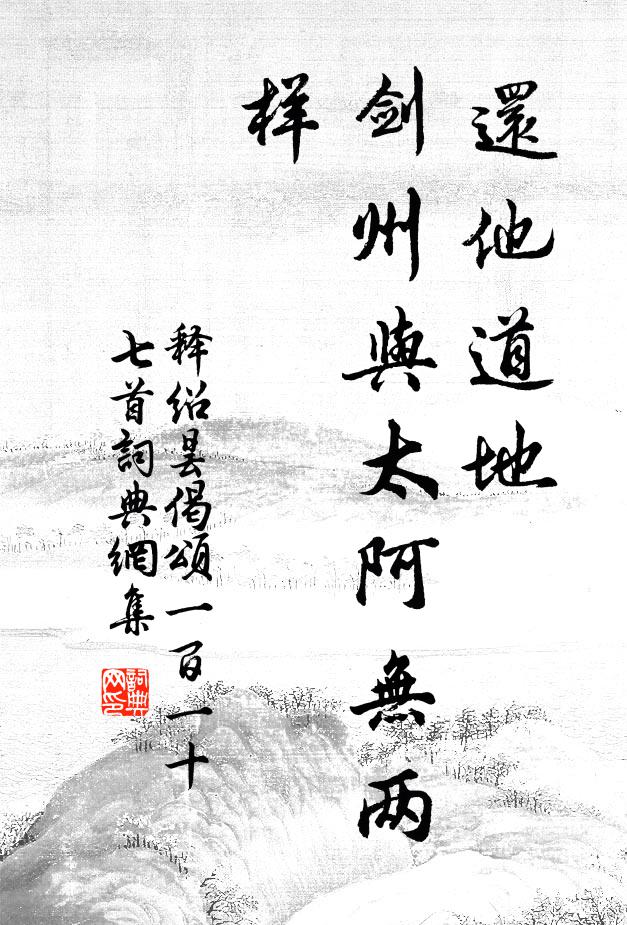 還他道地
劍州與太阿無两
样
释绍昙偈頌一百一十
七首詞典網集
詞典
网印